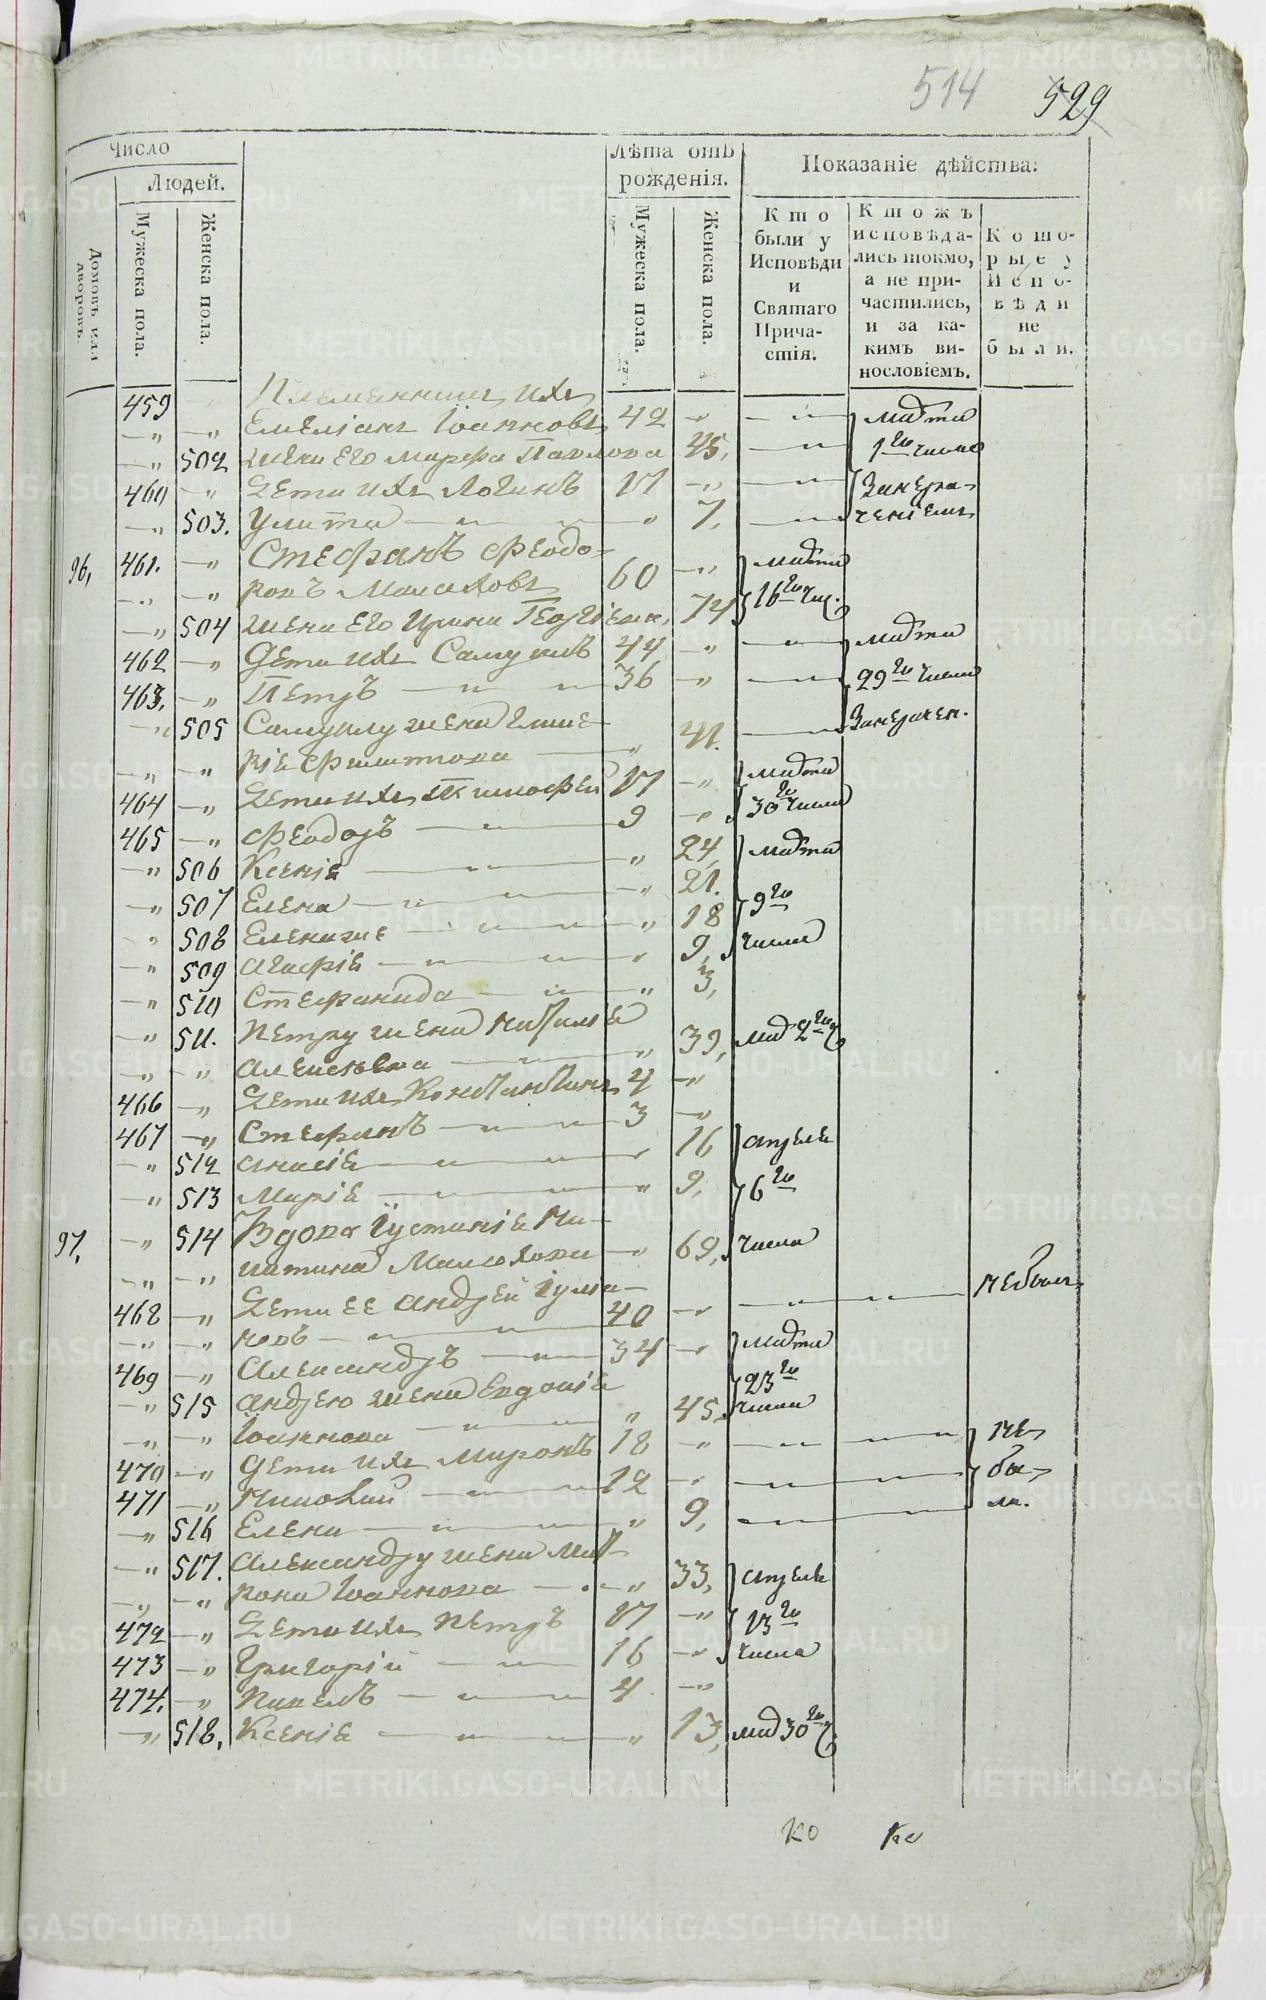 514 529
Число
Людей.
Домовъ или дворовъ.
Мужеска пола.
Женска пола.
Лѣта отъ рожденія.
Мужеска пола.
Женска пола.
Показаніе дѣйства:
Кто были у Исповѣди и Святаго Причастія.
Ктожъ исповѣдались токмо, а не причастились, и за какимъ винословіемъ.
Которые у Исповѣди не были.
459 Племянникъ ихъ
—„ —„ Емеліанъ Іоанновъ 42 —„ —„ Марта
—„ 502 Жена его Марфа Павлова 45, —„ 1го числа
460 —„ Дети ихъ Логинъ 17 —„ —„
—„ 503. Улита —„ —„ „ 7, —„
96, 461. —„ Стефанъ Феодо- 60 —„ Марта
—„ —„ ровъ Малаховъ
—„ 504 Жена его Ирина Георгіева, 74 16го чис.
462 —„ Дети ихъ Самуилъ 44 —„ —„ Марта
463, —„ Петръ —„ —„ 36 —„ —„ 29го числа
—„ 505 Самуилу жена Глике-
—„ —„ рія Филипова —„ 41. —„
464 —„ Дети ихъ Тимофей 17 —„ Марта
465 —„ Феодоръ —„ 9 —„ 30го числа
—„ 506 Ксенія —„ „ 24, Марта
—„ 507 Елена —„ —„ —„ 21.
—„ 508 —„ —„ „ 18 9го
—„ 509 Агафія —„ —„ „ 9, числа
—„ 510 Стефанида —„ „ 3,
—„ 511. Петру жена Наталія
—„ —„ Алексеева —„ „ 39, мар 2го ч
466 —„ Дети ихъ Константинъ 4 —„
467 —„ Стефанъ —„ —„ 3 —„
—„ 512 —„ —„ „ 16 Апреля
—„ 513 Марія —„ —„ „ 9, 6го
97, —„ 514 Вдова Іустинія Ни-
—„ —„ китина Малахова —„ 69, числа
468 —„ Дети ее Андрей
—„ —„ новъ —„ —„ 40 —„ —„ —„ небылъ
469 —„ Александръ —„ 34 —„ Марта
—„ 515 Андрею жена Евдокія 23го
—„ —„ Іоаннова —„ —„ „ 45, числа
470 —„ Дети ихъ Миронъ 18 —„ —„ не
471 —„ Николай —„ —„ 12 —„ —„ бы-
—„ 516 Елена —„ —„ „ 9, —„ ли.
—„ 517. Александру жена Мат-
—„ —„ рона Іоаннова —„ —„ 33, Апреля
472 —„ Дети ихъ Петръ 17 —„ 13го
473 —„ Григорій —„ 16 —„ числа
474, —„ Павелъ —„ —„ 4 —„
—„ 518, Ксенія —„ —„ „ 13, мар 30го ч
METRIKI.GASO-URAL.RU